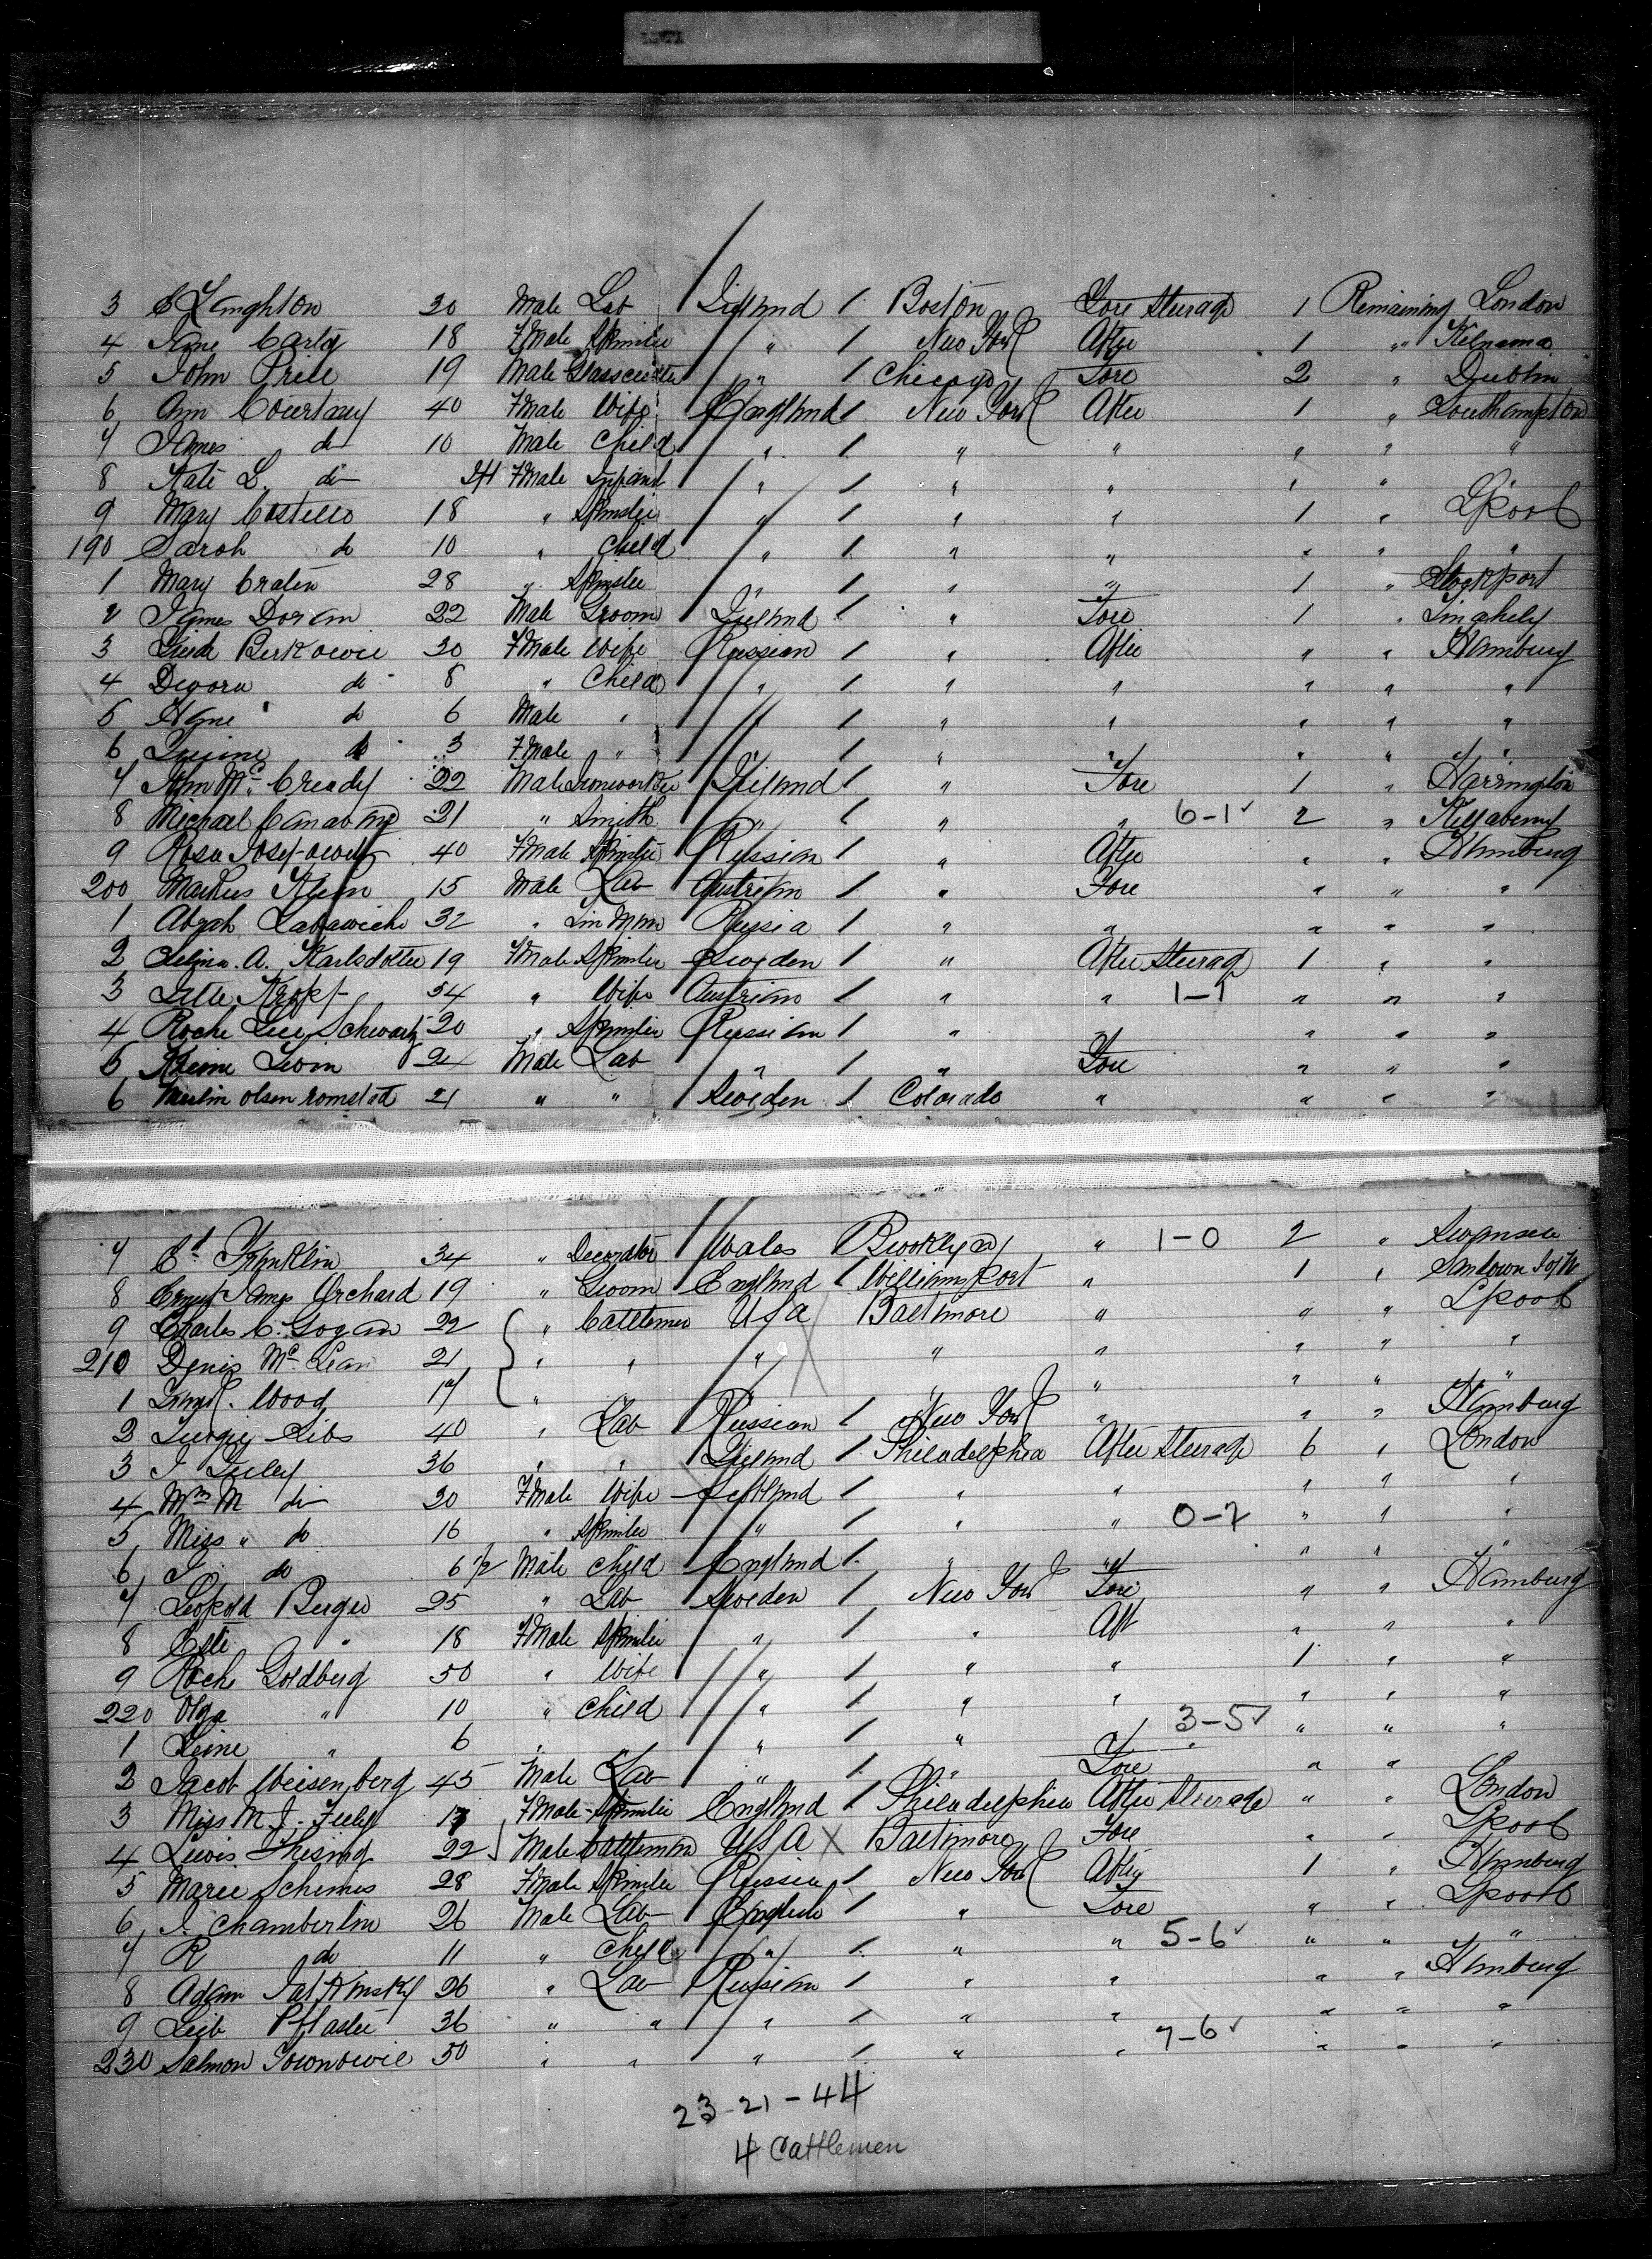 3 Laughton 30 Male Lab Ireland 1 Boston Fore Steerage 1 Remaining London
4 Jane Carty 18 FMale Spinster " 1 New York After 1 "
5 John Price 19 Male Glasscutter " 1 Chicago Fore 2 " Dublin
6 Ann Courtney 40 FMale Wife England 1 New York After 1 " Southampton
7 James do 10 Male Child " 1 " " " " "
8 Kate L. do FMale Infant " 1 " " " "
9 Mary Costello 18 " Spinster " 1 " " 1 " Lpool
190 Sarah do 10 " Child " 1 " " " " "
1 Mary 28 " Spinster " 1 " " 1 " Stockport
2 James Doran 22 Male Groom Ireland 1 " Fore 1 "
3 Berkowic 30 FMale Wife Russian 1 " After " " Hamburg
4 Devora do 8 " Child " 1 " " " " "
5 do 6 Male " " 1 " " " " "
6 do 3 FMale " " 1 " " " " "
7 John McCready 22 Male Ironworker Ireland 1 " Fore 1 " Harrington
8 Michael 21 " Smith " 1 " " 6-1 2 "
9 Rosa 40 FMale Spinster Russian 1 " After " " Hamburg
200 Markus Klein 15 Male Lab Austrian 1 " Fore " " "
1 32 " Tin Man Russia 1 " " " " "
2 A. Karlsdotter 19 FMale Spinster Sweden 1 " After Steerage 1 " "
3 Kropf 54 " Wife Austrian 1 " " 1-1 " " "
4 Schwartz 20 " Spinster Russian 1 " " " " "
5 Male Lab " 1 " Fore " " "
6 Olsen Romstad 21 " " Sweden 1 Colorado " " " "
7 Franklin 34 " Decorator Wales Brooklyn " 1-0 2 " Swansea
8 Ernest James Orchard 19 " Groom England 1 Williamsport " 1 " Sandown I of W
9 Charles C. Gogan 22 " Cattlemen USA Baltimore " " " Lpool
210 Denis McLean 21 " " " " " " " "
1 Wood 17 " " " " " " "
2 40 " Lab Russian 1 New York " " " Hamburg
3 36 " " Ireland 1 Philadelphia After Steerage 6 " London
4 Mrs M do 30 FMale Wife Scotland 1 " " " " "
5 Miss " do 16 " Spinster " 1 " " 0-7 " " "
6 do 6 1/2 Male Child England 1 " " " " "
7 Leopold Berger 25 " Lab Sweden 1 New York Fore " " Hamburg
8 " 18 FMale Spinster " 1 " Aft " " "
9 Goldberg 50 " Wife " 1 " " 1 " "
220 Olga " 10 " Child " 1 " " " " "
1 " 6 " " 1 " " 3-5 " " "
2 Jacob Weisenberg 45 Male Lab " 1 " Fore " "
3 Miss M. J. Feeley FMale Spinster England 1 Philadelphia After Steerage " " London
4 Lewis 22 Male Cattleman USA X Baltimore Fore " " Lpool
5 Marie 28 FMale Spinster Russia 1 New York After 1 " Hamburg
6 J. Chamberlin 26 Male Lab English 1 " Fore " " Lpool
7 R do 11 " Child " 1 " " 5-6 " " "
8 Adam 26 " Lab Russian 1 " " " " Hamburg
9 Leib Pflaster 36 " " " 1 " " " " "
230 Salmon 50 " " " 1 " " 7-6 " " "
23-21-44
4 Cattlemen